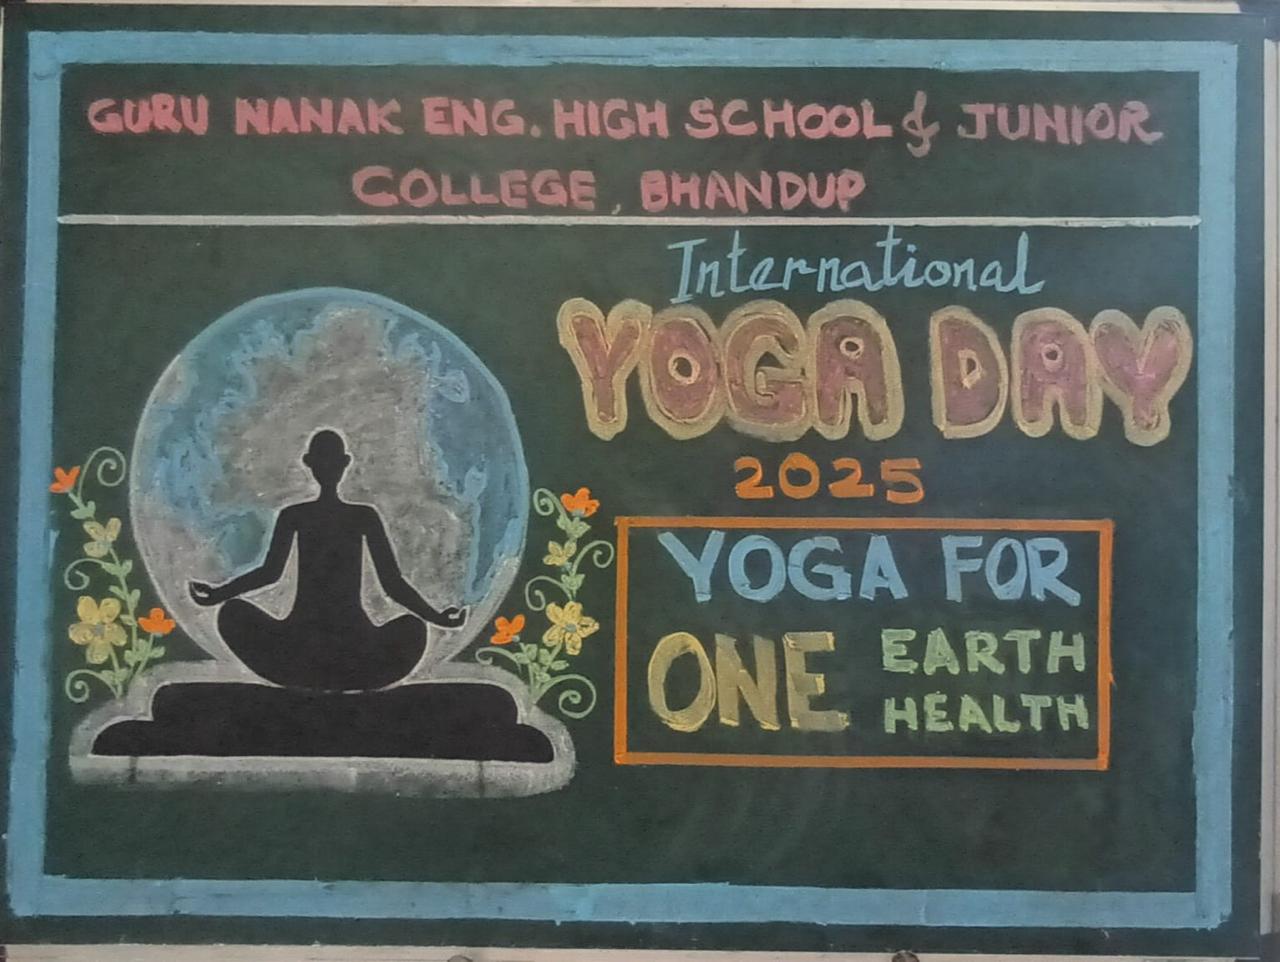 GURU NANAK ENG. HIGH SCHOOL & JUNIOR
COLLEGE, BHANDUP
International
YOGA DAY
2025
YOGA FOR
ONE EARTH
HEALTH